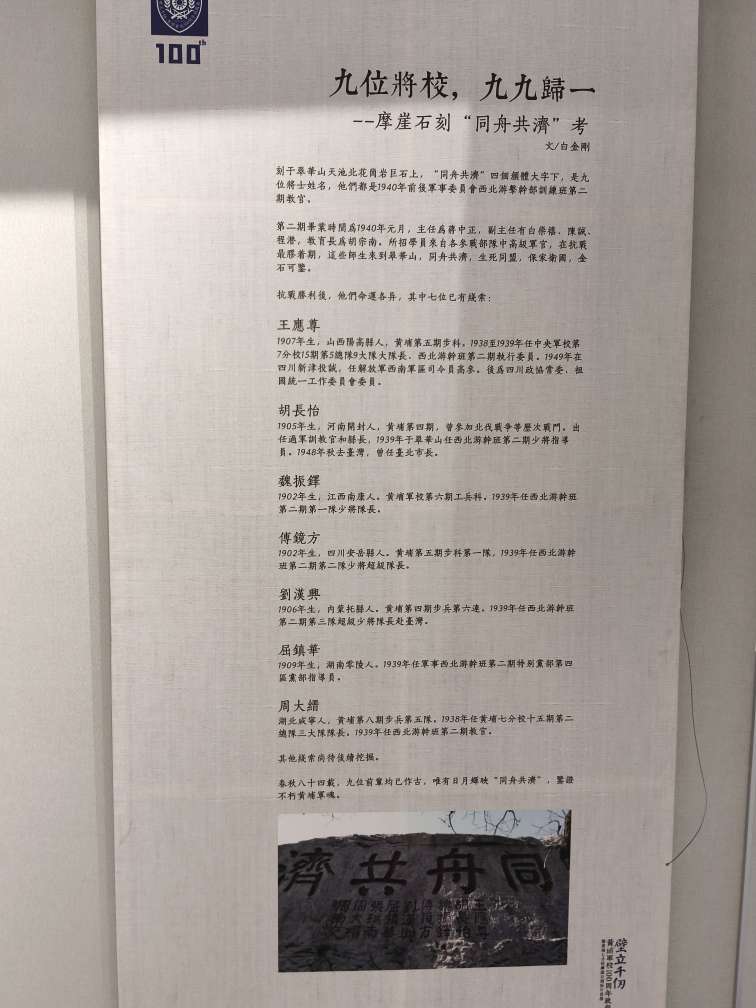 100th
九位將校，九九歸一
--摩崖石刻“同舟共濟”考
文/白金剛
刻于翠華山天池北花崗岩巨石上，“同舟共濟”四個顏體大字下，是九
位將士姓名，他們都是1940年前後軍事委員會西北游擊幹部訓練班第二
期教官。
第二期畢業時間爲1940年元月，主任爲蔣中正，副主任有白崇禧、陳誠、
程潛，教育長爲胡宗南。所招學員來自各參戰部隊中高級軍官，在抗戰
最膠着期，這些師生來到翠華山，同舟共濟，生死同盟，保家衛國，金
石可鑒。
抗戰勝利後，他們命運各异，其中七位已有綫索：
王應尊
1907年生，山西陽高縣人，黃埔第五期步科。1938至1939年任中央軍校第
7分校15期第5總隊9大隊大隊長、西北游幹班第二期執行委員。1949年在
四川新津投誠，任解放軍西南軍區司令員高參。後爲四川政協常委、祖
國統一工作委員會委員。
胡長怡
1905年生，河南開封人，黃埔第四期，曾參加北伐戰争等歷次戰鬥。出
任過軍訓教官和縣長，1939年于翠華山任西北游幹班第二期少將指導
員。1948年秋去臺灣，曾任臺北市長。
魏振鐸
1902年生，江西南康人。黃埔軍校第六期工兵科。1939年任西北游幹班
第二期第一隊少將隊長。
傅鏡方
1902年生，四川安岳縣人。黃埔第五期步科第一隊，1939年任西北游幹
班第二期第二隊少將超級隊長。
劉漢興
1906年生，内蒙托縣人。黃埔第四期步兵第六連。1939年任西北游幹班
第二期第三隊超級少將隊長赴臺灣。
屈鎮華
1909年生，湖南零陵人。1939年任軍事西北游幹班第二期特别黨部第四
區黨部指導員。
周大縉
湖北咸寧人，黃埔第八期步兵第五隊。1938年任黃埔七分校十五期第二
總隊三大隊隊長。1939年任西北游幹班第二期教官。
其他綫索尚待後續挖掘。
春秋八十四載，九位前輩均已作古，唯有日月輝映“同舟共濟”，鑒證
不朽黃埔軍魂。
濟共舟同
壁立千仞
黃埔軍校100周年